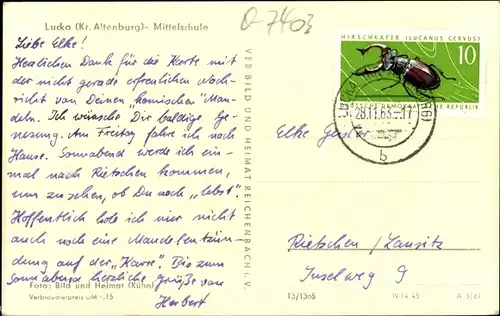 Lucka (Kr. Altenburg)- Mittelschule
Liebe Elke!
Herzlichen Dank für die Karte mit
der nicht gerade erfreulichen Nach-
richt von Deinen komischen "Man-
deln. Ich wünsche Dir baldige Ge-
nesung. Am Freitag fahre ich nach
Hause. Sonnabend werde ich ein-
mal nach Rietschen kommen,
um zu sehen, ob Du noch "lebst".
Hoffentlich hole ich mir nicht
auch noch eine Mandelentzün-
dung auf der "Karre". Bis zum
Sonnabend herzliche Grüße von
Herbert
Foto: Bild und Heimat (Kühn)
Verbraucherpreis DM -.15
VEB BILD UND HEIMAT REICHENBACH i. V.
HIRSCHKÄFER (LUCANUS CERVUS)
10
DEUTSCHE DEMOKRATISCHE REPUBLIK
28.11.63.-17
b
Elke
Rietschen / Lausitz
Inselweg 9
13/1365
IV-14-45